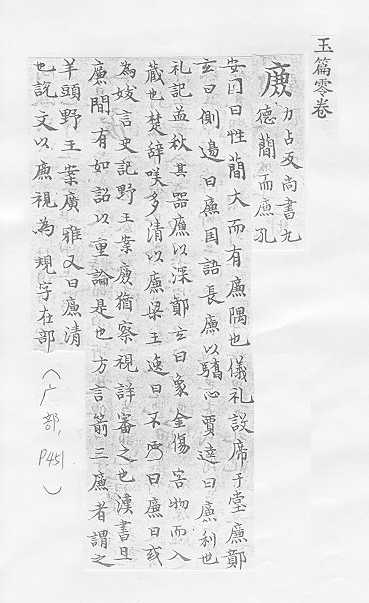 玉篇零卷
廉
力占反尚書九
德簡而廉孔
安国曰性簡大而有廉隅也儀礼設席于堂廉鄭
玄曰側邊曰廉国語長廉以驕心賈逵曰廉利也
礼記孟秋其器廉以深鄭玄曰象金傷害物而入
藏也楚辞咲多清以廉梁王逸曰不受曰廉曰或
為妓言史記野王案廉猶察視詳審之也漢書且
廉間有如詔以重論是也方言箭三廉者謂之
羊頭野王案廣雅又曰廉清
也説文以廉視為覝字在部
（广部，P451）